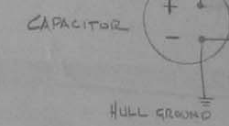 CAPACITOR
+
-
HULL GROUND